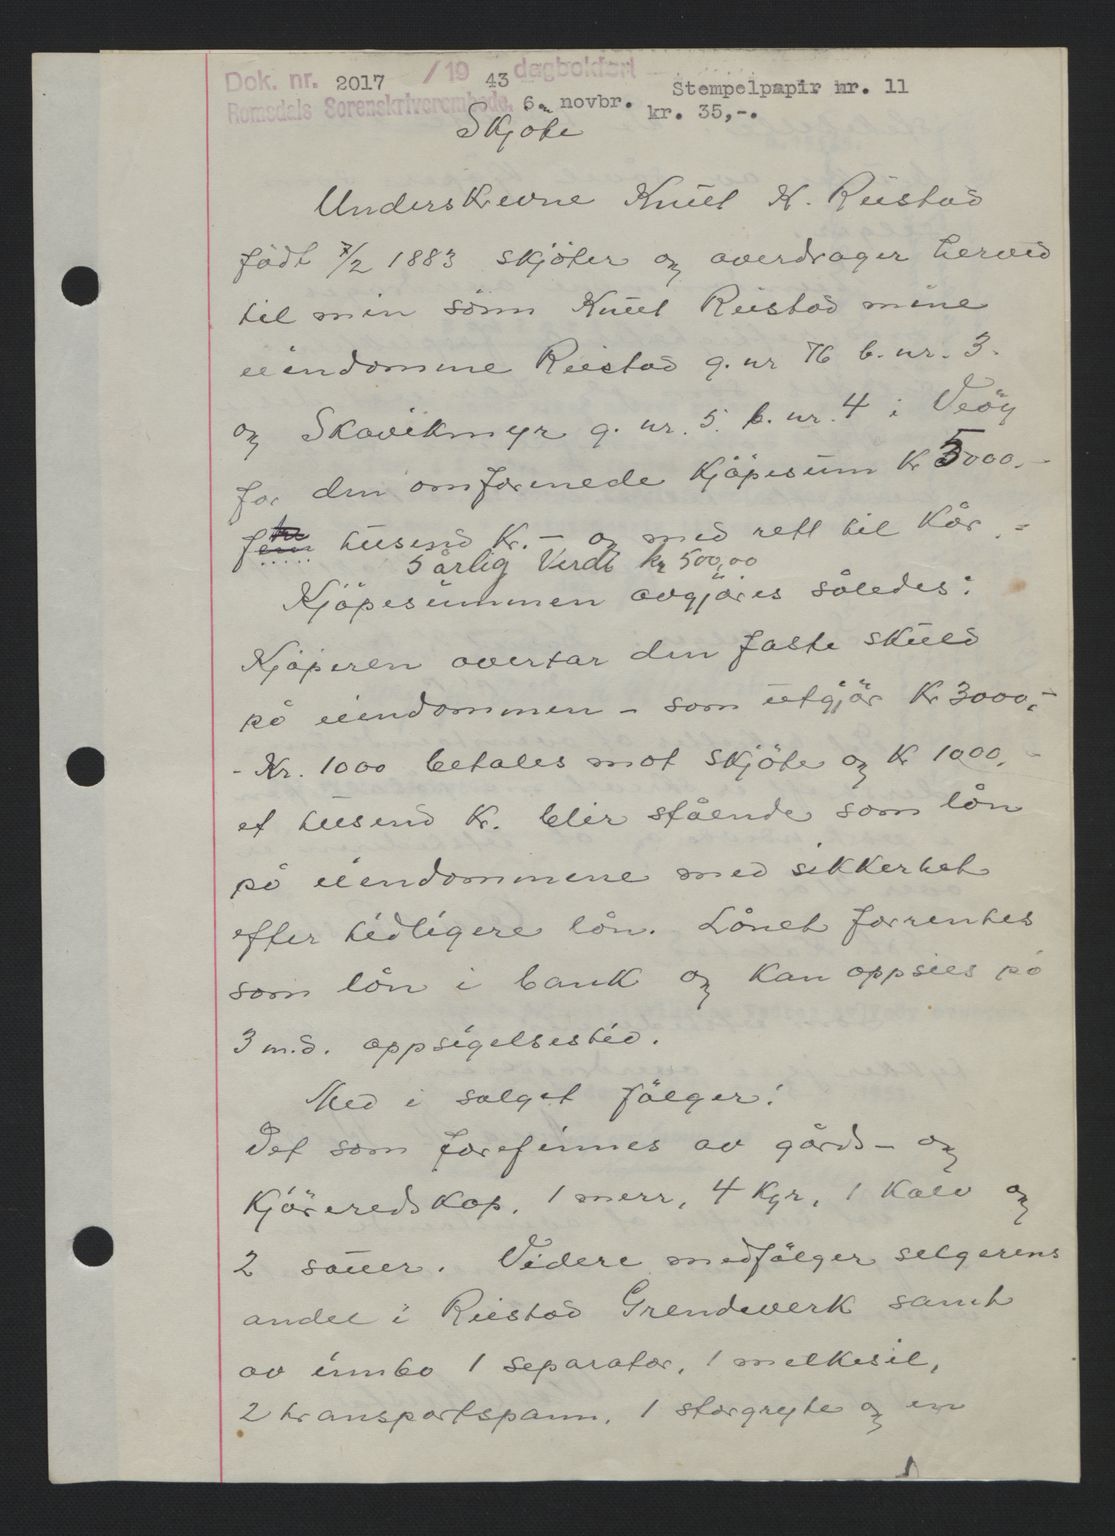 Dok. nr. 2017 /19 43 dagbokført Stempelpapir nr. 11
Romsdals Sorenskriverembede, 6. novbr. kr. 35,-.
Skjøte
Underskrevne Knut K. Ristad
född 7/2 1883 skjöter og overdrager herved
til min sönn Knut Ristad mine
eiendomme Ristad g. nr 76 b. nr. 3.
og Skavikmyr g. nr. 5. b. nr. 4 i Veöy
for den omforenede Kjöpesum Kr 5000.-
fem tusend Kr. - og med rett til Kår.-
5 årlig Verdi kr 500,00
Kjöpesummen avgjöres således:
Kjöperen overtar den faste skuld
på eiendommen - som utgjör Kr 3000,-
- Kr. 1000 betales mot Skjöte og Kr 1000.-
et tusend Kr. blir stående som lån
på eiendommene med sikkerhet
efter tidligere lån. Lånet forrentes
som lån i bank og kan oppsies på
3 m.d. oppsigelsestid.
Med i salget fölger:
Det som forefinnes av gårds- og
Kjöreredskap. 1 merr, 4 Kyr, 1 Kalv og
2 sauer. Videre medfölger selgerens
andel i Ristad Grendeverk samt
av innbo 1 separator, 1 melkesil,
2 transportspann, 1 storgryte og en